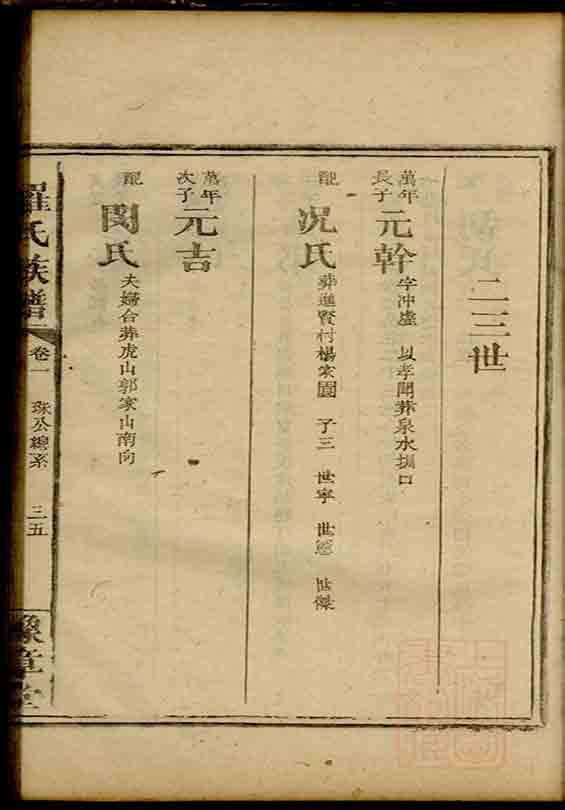 二三世
萬年長子 元幹 字沖虛 以孝聞葬泉水堀口
配 况氏 葬進賢村楊家園 子三 世寧 世愿 世傑
萬年次子 元吉
配 閔氏 夫婦合葬虎山郭家山南向
羅氏族譜 卷一 珠公總系 三五 豫章堂